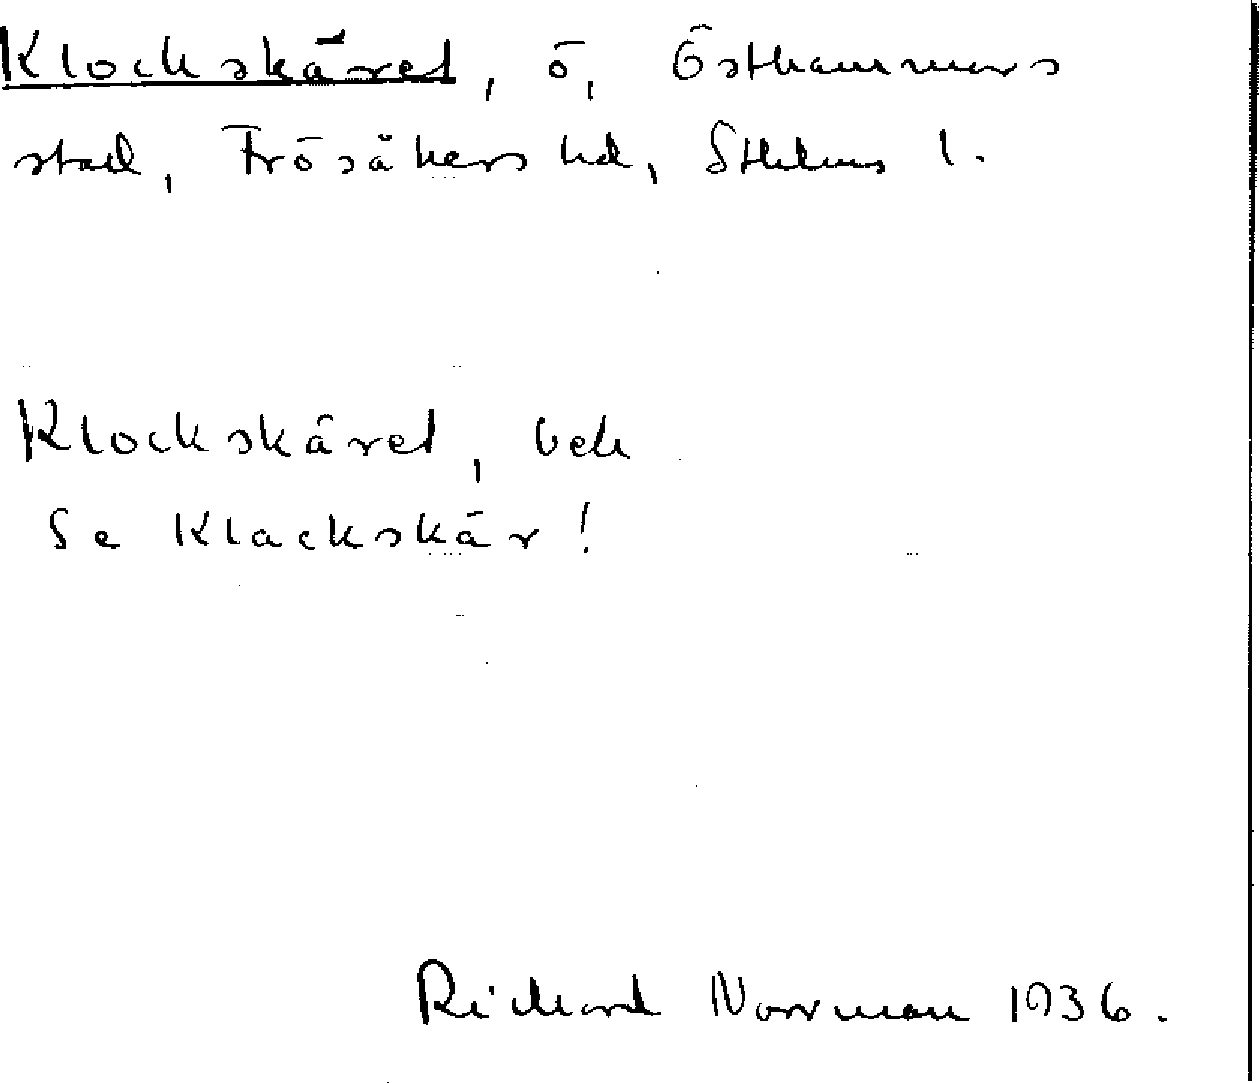 Klockskäret, ö, Östhammars
stad, Frösåkers hd, Sthlms l.
Klockskäret, bek
Se Klackskär!
Richard Norrman 1936.